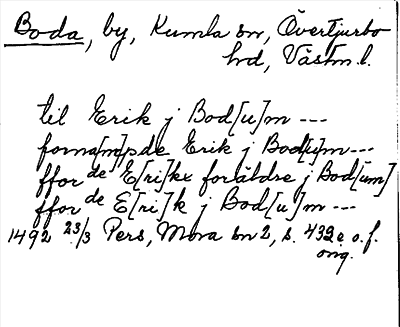 Boda, by, Kumla sn, Övertjurbo
hd, Västm.l.
til Erik j Bod[u]m ---
forna[m]pde Erik j Bod[u]m---
ffor de E[ri]kx foräldre j Bod[um]
ffor de E[ri]k j Bod[u]m ---
1492 23/3 Pers, Mora sn 2, s. 432 o.f.
orig.